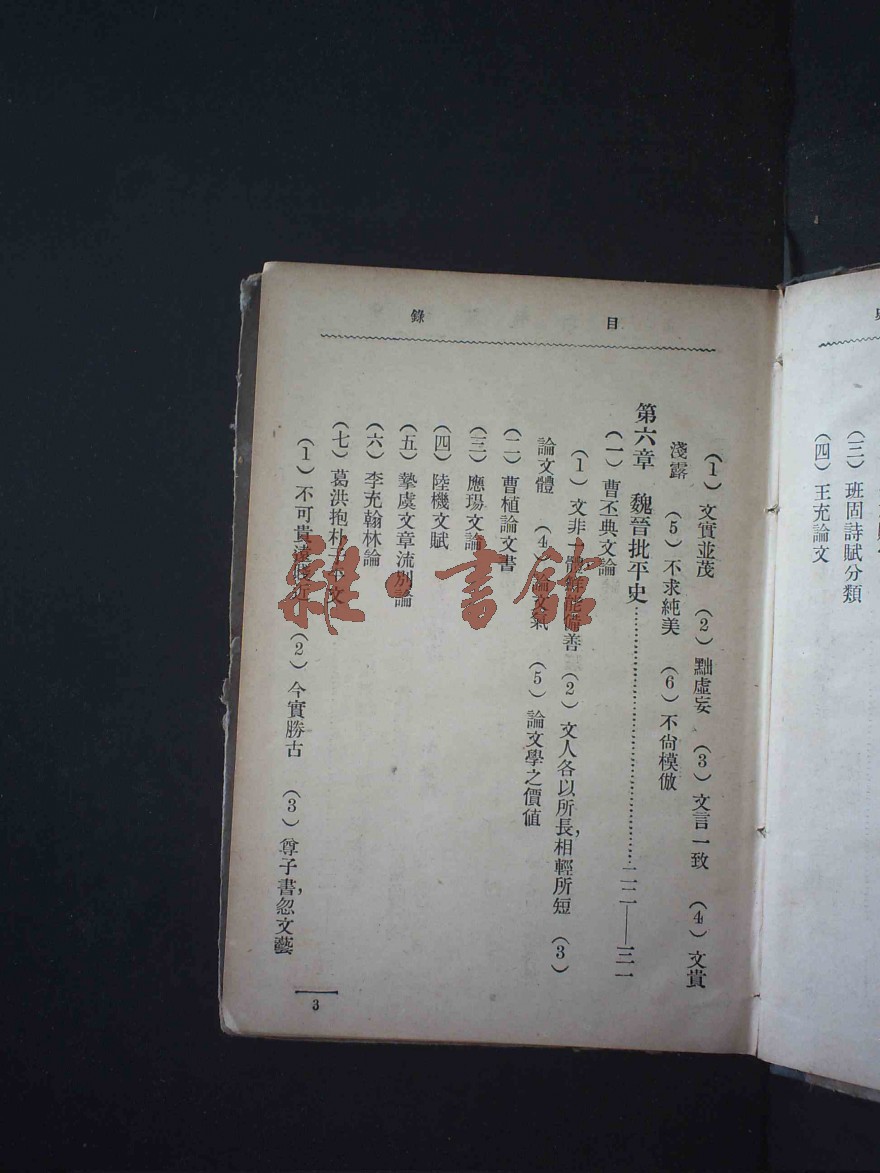 史
（三）班固詩賦分類
（四）王充論文
目錄
（1）文實並茂　（2）黜虛妄　（3）文言一致　（4）文貴
淺露　（5）不求純美　（6）不尙模倣
第六章　魏晉批平史…………二二——三一
（一）曹丕典文論
（1）文非一體鮮能備善（2）文人各以所長，相輕所短　（3）
論文體　（4）論文氣　（5）論文學之價值
（二）曹植論文書
（三）應瑒文論
（四）陸機文賦
（五）摯虞文章流別論
（六）李充翰林論
（七）葛洪抱朴子本文
（1）不可貴遠賤近　（2）今實勝古　（3）尊子書，忽文藝
3
雜·書館